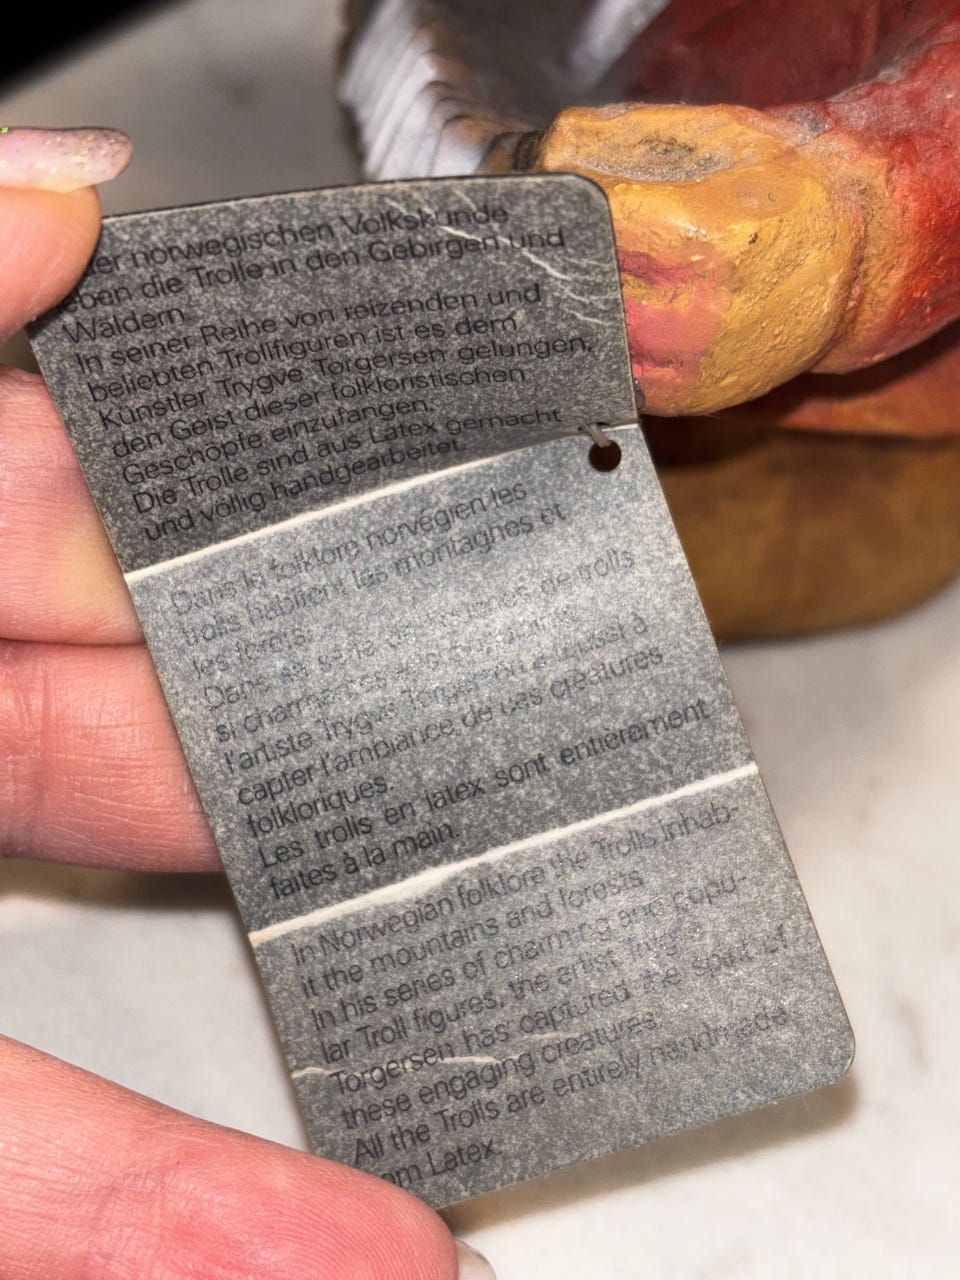 der norwegischen Volkskunde
leben die Trolle in den Gebirgen und
Wäldern.
In seiner Reihe von reizenden und
beliebten Trollfiguren ist es dem
Künstler Trygve Torgersen gelungen,
den Geist dieser folkloristischen
Geschöpfe einzufangen.
Die Trolle sind aus Latex gemacht
und völlig handgearbeitet.
Dans le folklore norvégien les
trolls habitent les montagnes et
les forêts.
Dans sa série de trolls
si charmantes
l'artiste Trygve Torgersen a réussi à
capter l'ambiance de ces créatures
folkloriques.
Les trolls en latex sont entièrement
faites à la main.
In Norwegian folklore the Trolls inhab-
it the mountains and forests.
In his series of charming and popu-
lar Troll figures, the artist Trygve
Torgersen has captured the spirit of
these engaging creatures.
All the Trolls are entirely handmade
from Latex.